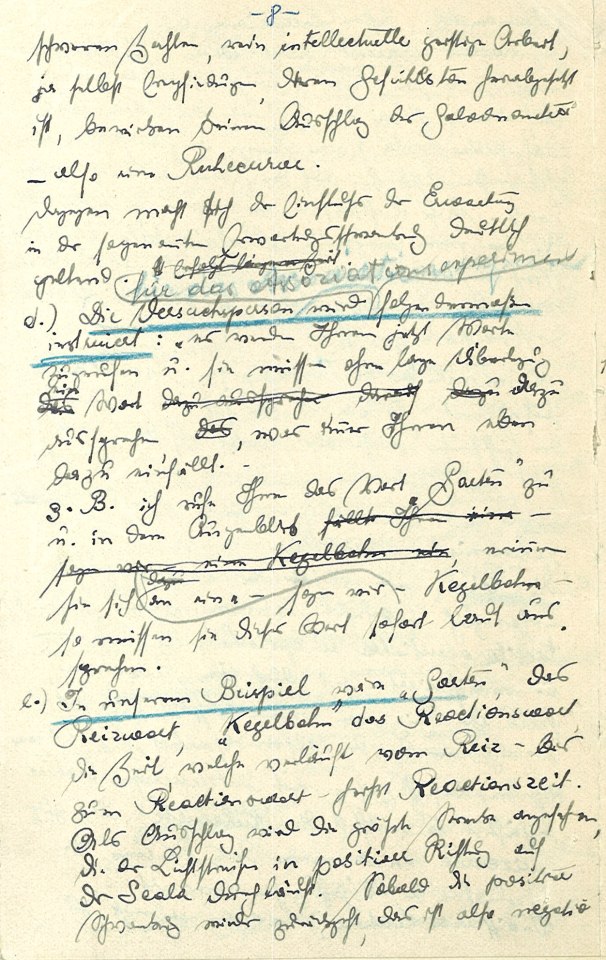 -8-
schweren Zahlen, rein intellectuelle geistige Arbeit,
ja selbst Empfindungen, deren Gefühlston herabgesetzt
ist, bewirken keinen Ausschlag des Galvanometers
- also eine Ruhecurve.
Dagegen macht sich der Einfluss der Erwartung
in der sogenannten Erwartungsschwankung deutlich
geltend.
für das Associationsexperiment
d.) Die Versuchsperson wird folgendermaßen
instruiert: „es werden Ihnen jetzt Worte
zugerufen u. sie müssen ohne lange Überlegung
Wort dazu
aussprechen, was Ihnen eben
dazu einfällt. -
z. B. ich rufe Ihnen das Wort „Garten" zu
u. in dem Augenblick fällt Ihnen eine -
sagen wir - eine Kegelbahn ein, erinnern
sie sich dazu an eine - sagen wir - Kegelbahn -
so müssen sie dieses Wort sofort laut aus
sprechen.
e.) In unserem Beispiel wäre „Garten", das
Reizwort, „Kegelbahn" das Reactionswort,
die Zeit, welche verläuft vom Reiz - bis
zum Reactionswort - heißt Reactionszeit.
Als Ausschlag wird die größte Strecke angesehen,
die der Lichtstreifen in positiver Richtung auf
der Scala durchläuft. Sobald die positive
Schwankung wieder zurückgeht, das ist also, negativ